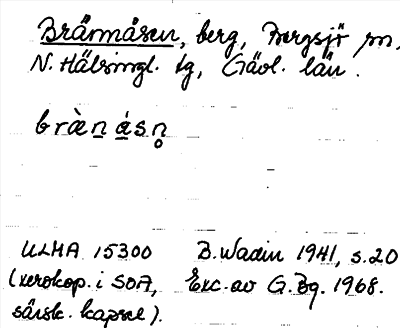 Brännåsen, berg, Bergsjö sn,
N. Hälsingl. tg, Gävl. län.
bràn̲ á̲s.n̥
ULMA 15300 B. Wadin 1941, s. 20
(xerokop. i SOA, Exc. av G. Bg. 1968.
särsk. kapsel).